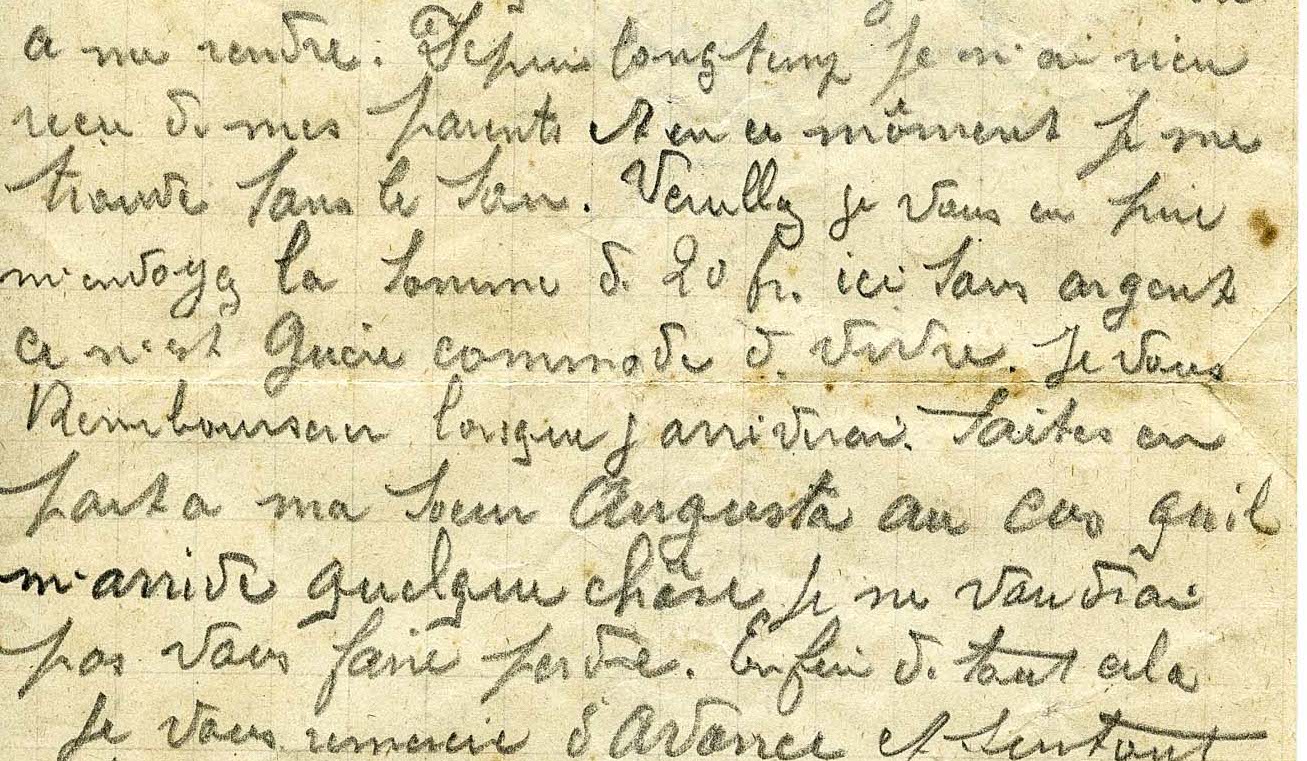 a me rendre. Depuis longtemp je n'ai rien
reçu de mes parents et en ce môment je me
trouve sans le sou. Veuillez je vous en prie
m'envoyez la somme de 20 fr. ici sans argent
ce n'est guère commode de vivre. Je vous
Rembourserer lorsque j arriverai. Faites en
part a ma soeur Augusta au cas qu'il
m'arrive quelque chôse je ne voudrai
pas vous faire perdre. Enfin de tout cela
Je vous remercie d'avance et surtout